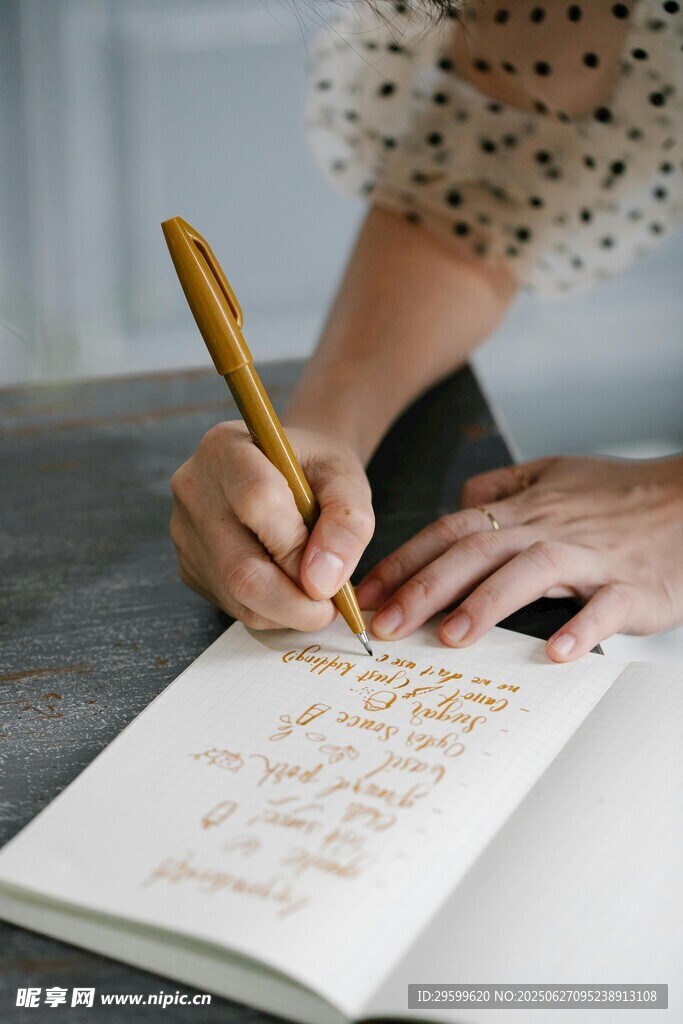 Ingredients
garlic
fish sauce
chilli
ground pork
basil
Oyster Sauce
Sugar
Carrot (just kidding)
no we don't use c
昵享网 www.nipic.cn
ID:29599620 NO:20250627095238913108